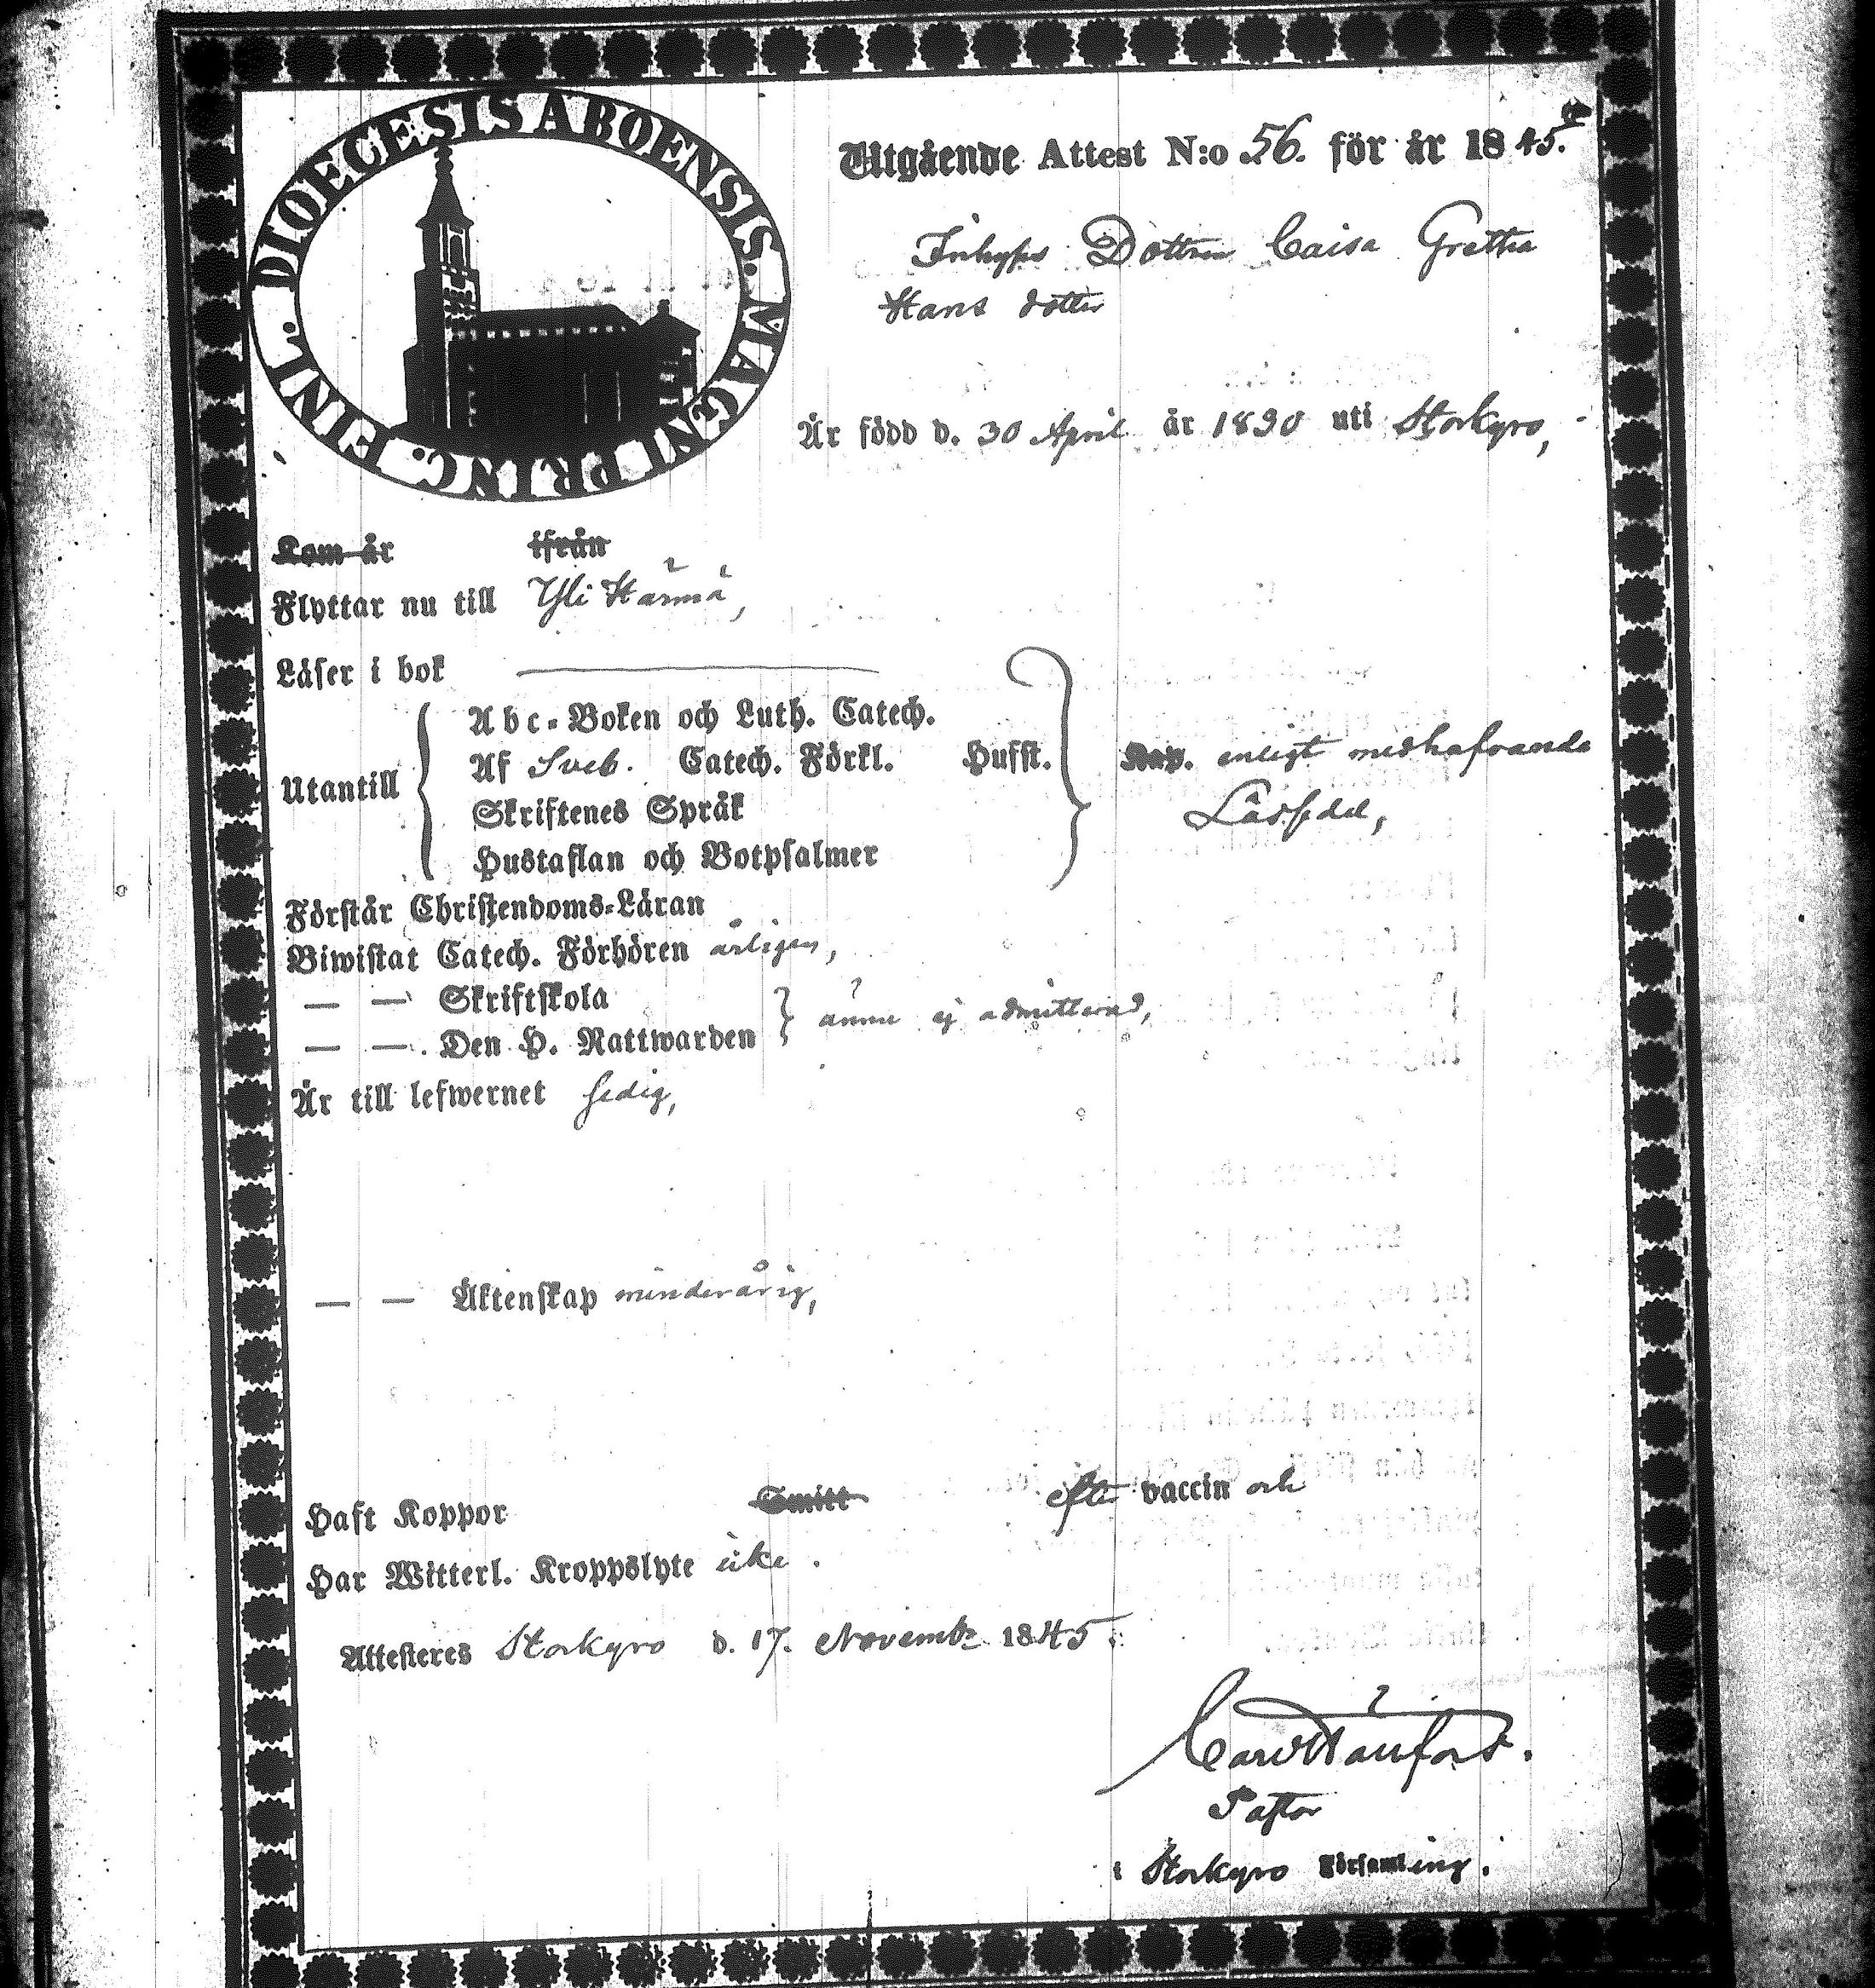 DIOECESIS ABOENSIS. MAGNI PRINC. FINL.
Utgående Attest N:o 56. för år 1845.
Inhyses Dottren Caisa Gretha
Hans dotter
Är född d. 30 April år 1830 uti Storkyro,
Kom år ifrån
Flyttar nu till Yli Härmä,
Läser i bok
Abc-Boken och Luth. Catech.
Utantill Af Sveb. Catech. Förkl. Hufst. enligt medhafvande
Skriftenes Språk Lässedel,
Hustaflan och Botpsalmer
Förstår Christendoms-Läran
Biwistat Catech. Förhören årligen,
— — Skriftskola
— — Den H. Nattwarden ännu ej admitterad,
Är till lefwernet sedig,
— — Äktenskap minderårig,
Haft Koppor Smitt efter vaccin och
Har Witterl. Kroppslyte icke.
Attesteres Storkyro d. 17. Novembr. 1845.
Pastor
i Storkyro Församling.